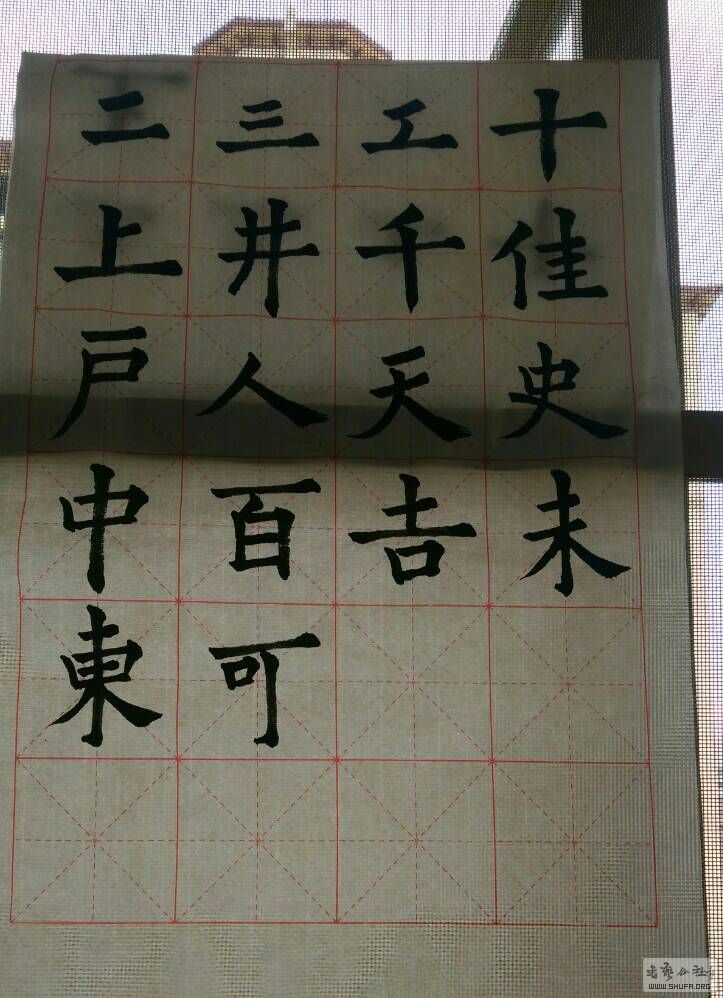 二三工十
上井千佳
戸人天史
中百吉未
東可
书艺公社
WWW.SHUFA.ORG